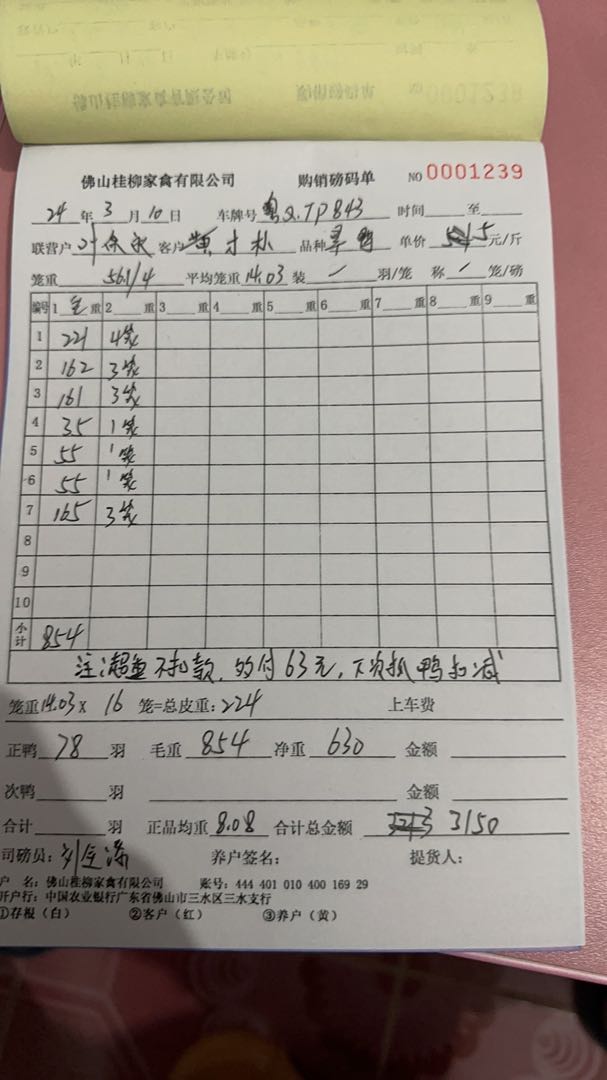 佛山桂柳家禽有限公司 购销磅码单 NO 0001239
24年3月10日 车牌号 粤Q.TP843 时间 至
联营户 客户 才朴 品种 单价 5元/斤
笼重 56.1/4 平均笼重14.03 装 / 羽/笼 称 / 笼/磅
编号 1 毛 重 2 重 3 重 4 重 5 重 6 重 7 重 8 重 9 重
1 221 4笼
2 162 3笼
3 161 3笼
4 35 1笼
5 55 1笼
6 55 1笼
7 165 3笼
8
9
10
小计 854
注: 不扣款, 付63元, 下次抓鸭扣减
笼重14.03× 16 笼=总皮重: 224 上车费
正鸭 78 羽 毛重 854 净重 630 金额
次鸭 羽 金额
合计 羽 正品均重 8.08 合计总金额 3150
司磅员: 刘 养户签名: 提货人:
户 名: 佛山桂柳家禽有限公司 账号: 444 401 010 400 169 29
开户行: 中国农业银行广东省佛山市三水区三水支行
①存根(白) ②客户(红) ③养户(黄)